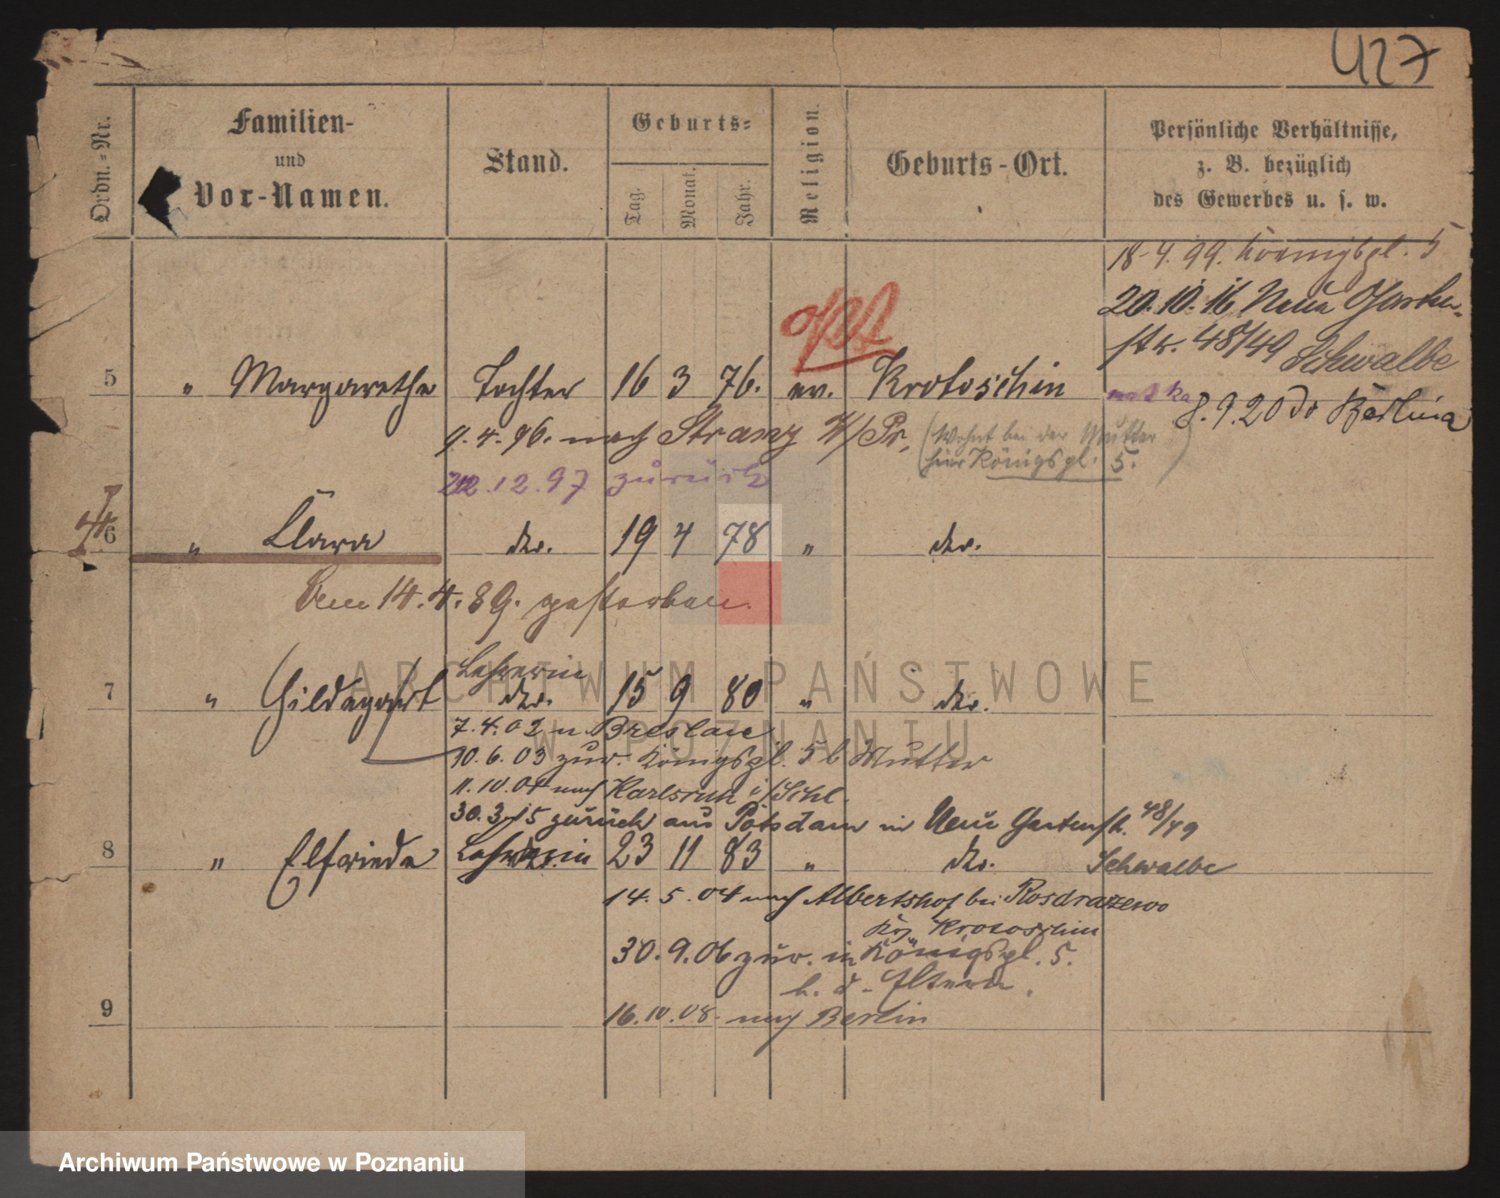 427
Ordn.-Nr.
Familien-
und
Vor-Namen.
Stand.
Geburts-
Tag.
Monat.
Jahr.
Religion.
Geburts-Ort.
Persönliche Verhältnisse,
z. B. bezüglich
des Gewerbes u. s. w.
18.4.99. Koenigspl. 5
20.10.16 Neue Garten-
str. 48/49 Schwalbe
5 " Margarethe Tochter 16 3 76. ev. Krotoschin
8.9.20 Berlin
9.4.96. nach W/Pr.
(Wohnt bei der Mutter
hier Königspl. 5.)
22.12.97 zurück
6 " Clara do. 19 4 78 " do.
Den 14.4.89. gestorben.
Lehrerin
7 " Hildegart do. 15 9 80 " do.
7.4.02 n. Breslau
10.6.03 zur. Königspl. 5 b Mutter
11.10.04 nach Karlsruh i/Schl.
30.3.15 zurück aus Potsdam in Neue Gartenstr. 48/49
8 " Elfriede Lehrerin 23 11 83 " do. Schwalbe
14.5.04 nach Albertshof bei Rosdrazewo
Krs. Krotoschin
30.9.06 zur. in Königspl. 5.
b. d. Eltern.
9
16.10.08. nach Berlin
ARCHIWUM PAŃSTWOWE
W POZNANIU
Archiwum Państwowe w Poznaniu